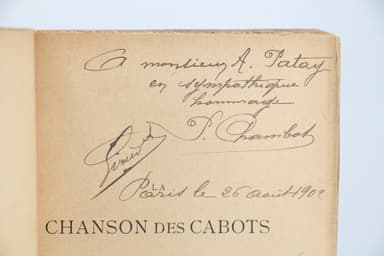 A monsieur A. Patay
en sympathique
hommage
P. Chambot
Girier
LA
Paris le 26 août 1902
CHANSON DES CABOTS